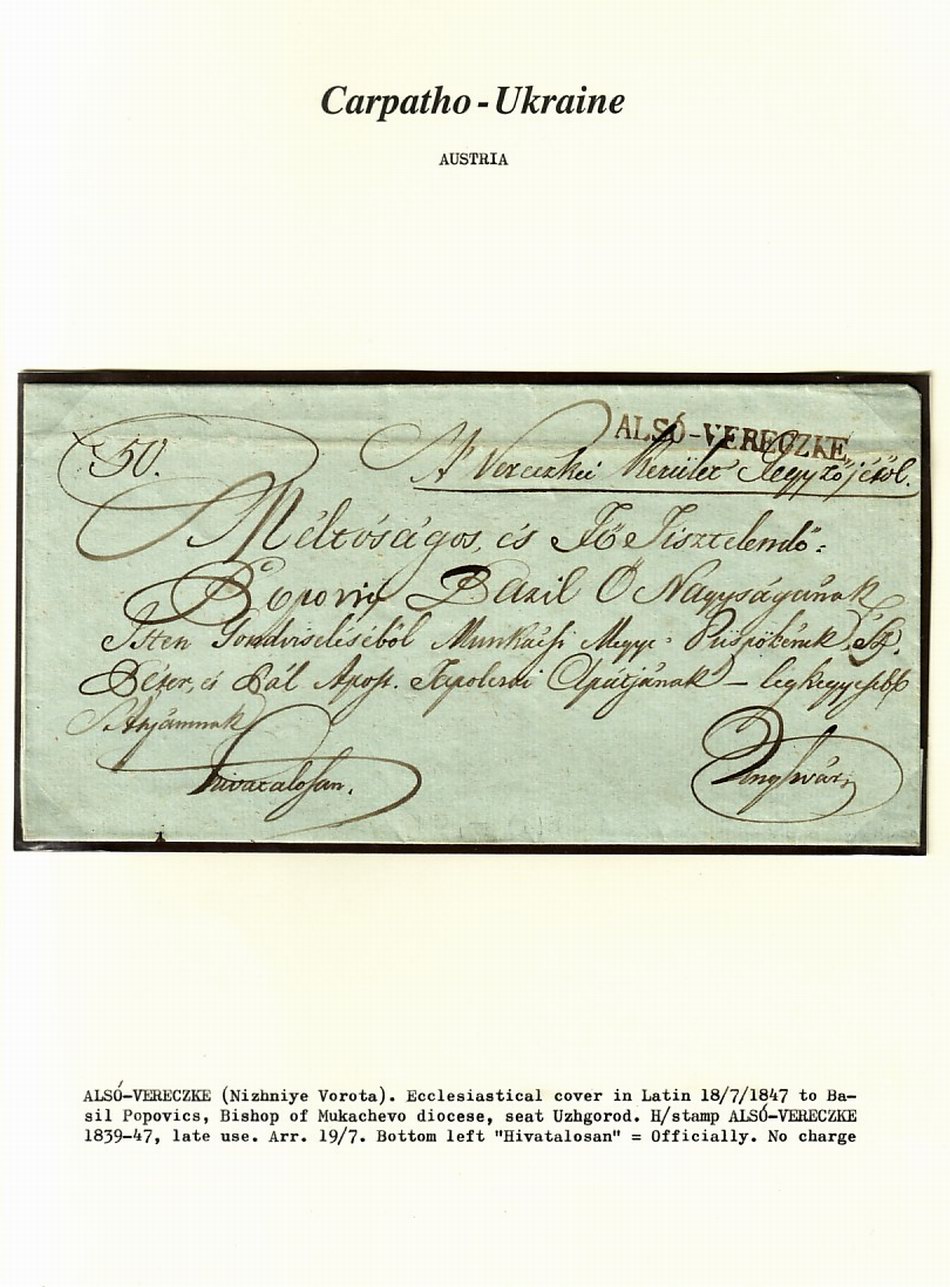 Carpatho-Ukraine
AUSTRIA
ALSÓ-VERECZKE
50.
A' Vereczkei Kerület Jegyzőjétől.
Méltóságos, és Fő Tisztelendő
Popovig Bazil Ő Nagyságának
Isten Gondviseléséből Munkácsi Megye Püspökének, Sz.
Péter, és Pál Apost. Tapolczai Apátjának – legkegyesebb
Atyámnak
hivatalosan.
Ungvár,
ALSÓ-VERECZKE (Nizhniye Vorota). Ecclesiastical cover in Latin 18/7/1847 to Ba-
sil Popovics, Bishop of Mukachevo diocese, seat Uzhgorod. H/stamp ALSÓ-VERECZKE
1839-47, late use. Arr. 19/7. Bottom left "Hivatalosan" = Officially. No charge